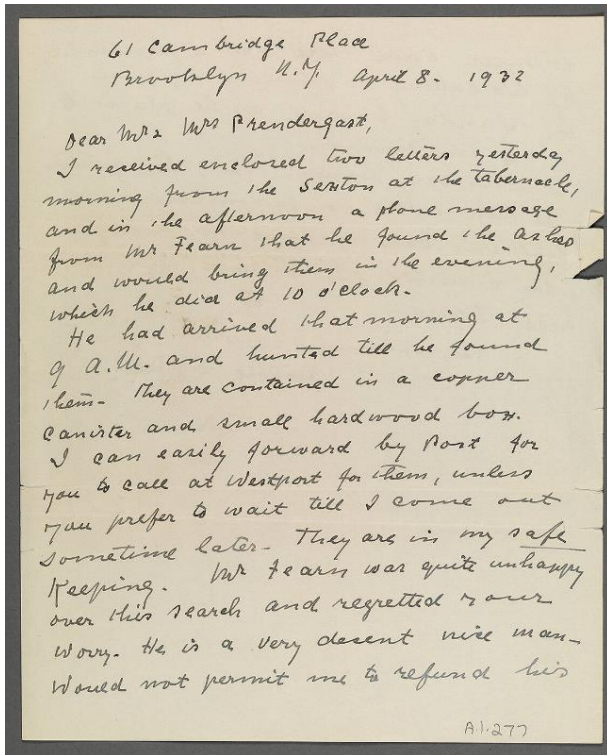 61 Cambridge Place
Brooklyn N.Y. April 8. 1932
Dear Mr & Mrs Prendergast,
I received enclosed two letters yesterday
morning from the Sexton at the tabernacle,
and in the afternoon a phone message
from Mr Fearn that he found the ashes
and would bring them in the evening,
which he did at 10 o'clock.
He had arrived that morning at
9 A.M. and hunted till he found
them. They are contained in a copper
canister and small hardwood box.
I can easily forward by Post for
you to call at Westport for them, unless
you prefer to wait till I come out
sometime later. They are in my safe
Keeping. Mr Fearn was quite unhappy
over this search and regretted your
worry. He is a very decent nice man.
Would not permit me to refund his
A.1.277